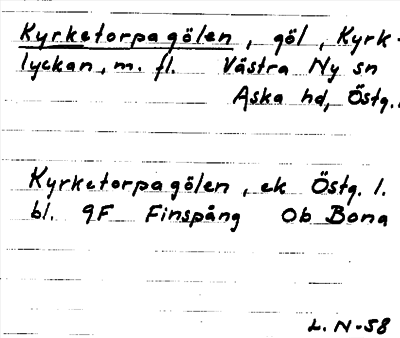 Kyrketorpagölen, göl, Kyrk-
lyckan, m. fl. Västra Ny sn
Aska hd, Östg.
Kyrketorpagölen, ek Östg. l.
bl. 9F Finspång Ob Bona
L. N-58